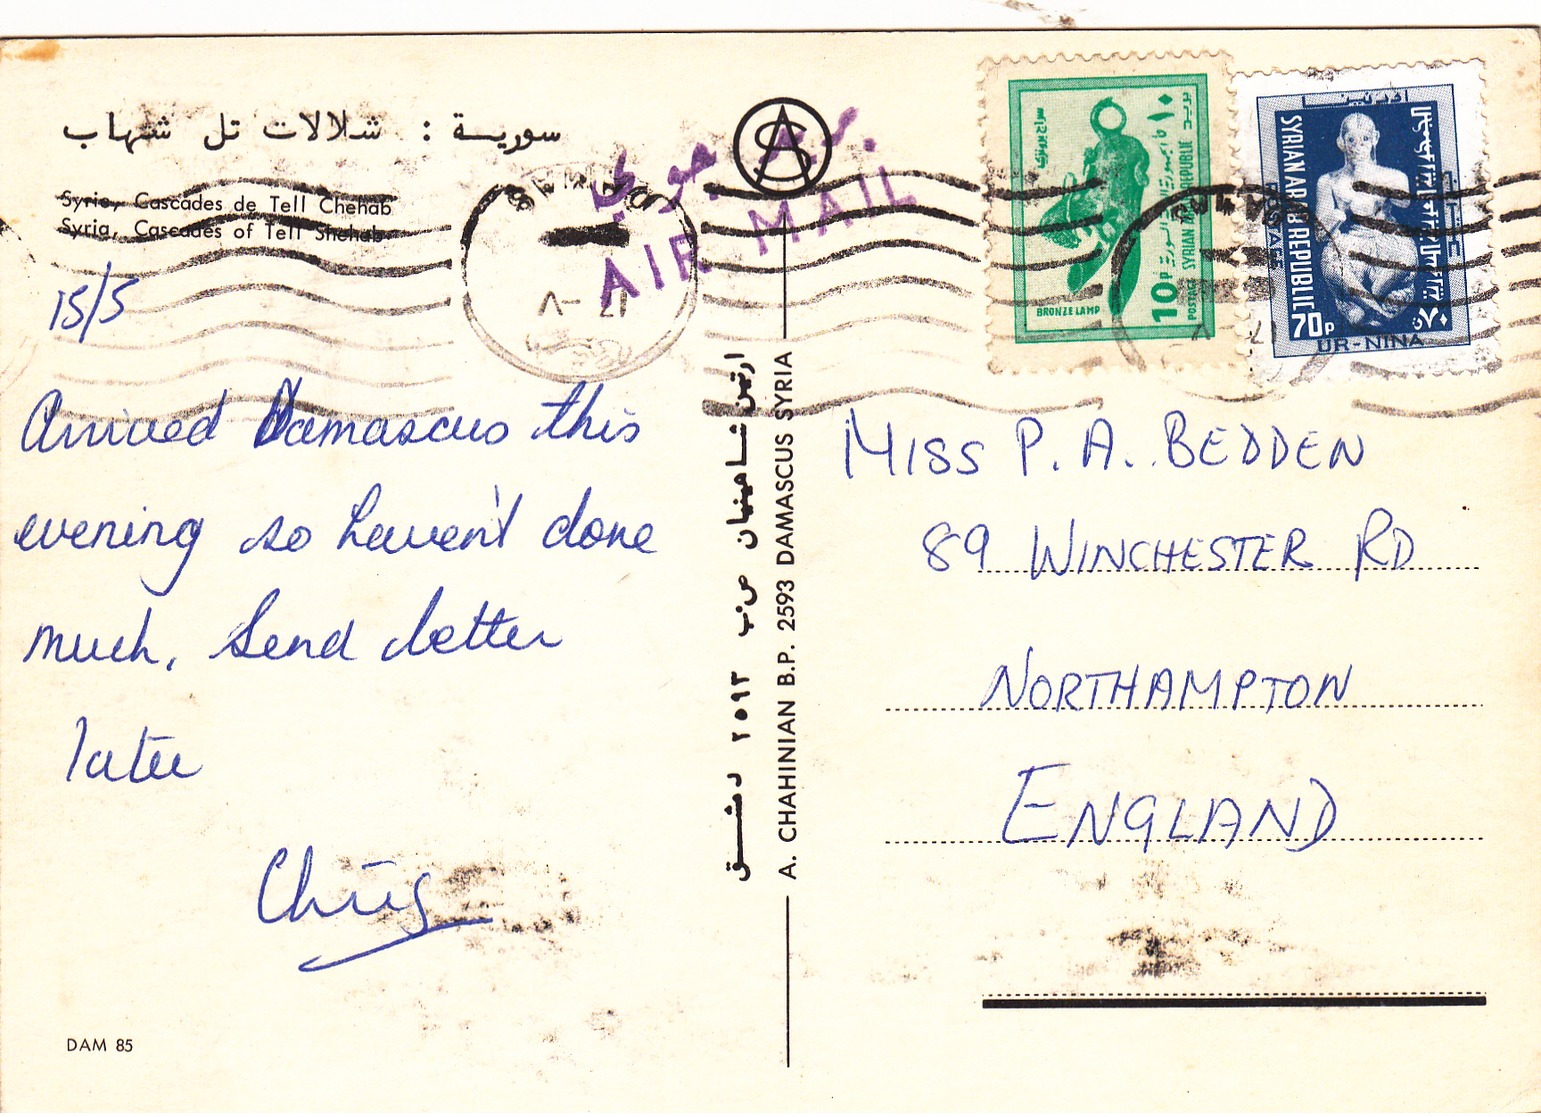 سورية : شلالات تل شهاب
Syrie, Cascades de Tell Chehab
Syria, Cascades of Tell Shehab
15/5
Arrived Damascus this
evening so haven't done
much. Send letter
later
Chris
DAM 85
AIR MAIL
ارتين شاهينيان ص.ب ٢٥٩٣ دمشق
A. CHAHINIAN B.P. 2593 DAMASCUS SYRIA
سراج برونزي
بريد
١٠
10P
POSTAGE SYRIAN REPUBLIC
BRONZE LAMP
SYRIAN ARAB REPUBLIC
POSTAGE
70P
٧٠
UR-NINA
MISS P. A. BEDDEN
89 WINCHESTER RD
NORTHAMPTON
ENGLAND